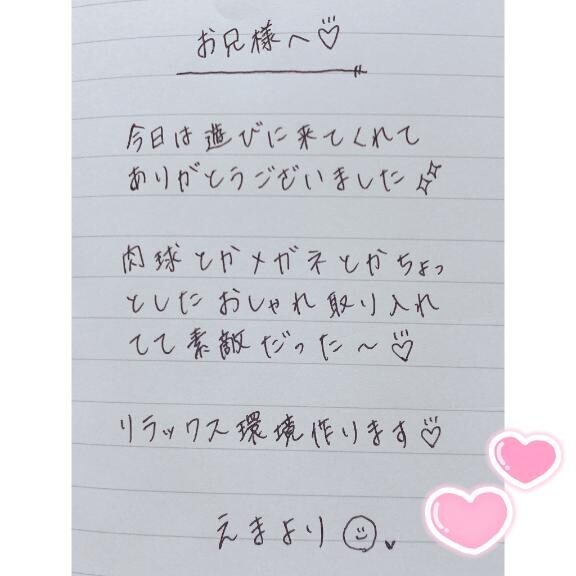 お兄様へ♡
今日は遊びに来てくれて
ありがとうございました✨
肉球とかメガネとかちょっ
としたおしゃれ取り入れ
てて素敵だった〜♡
リラックス環境作ります♡
えまより☺